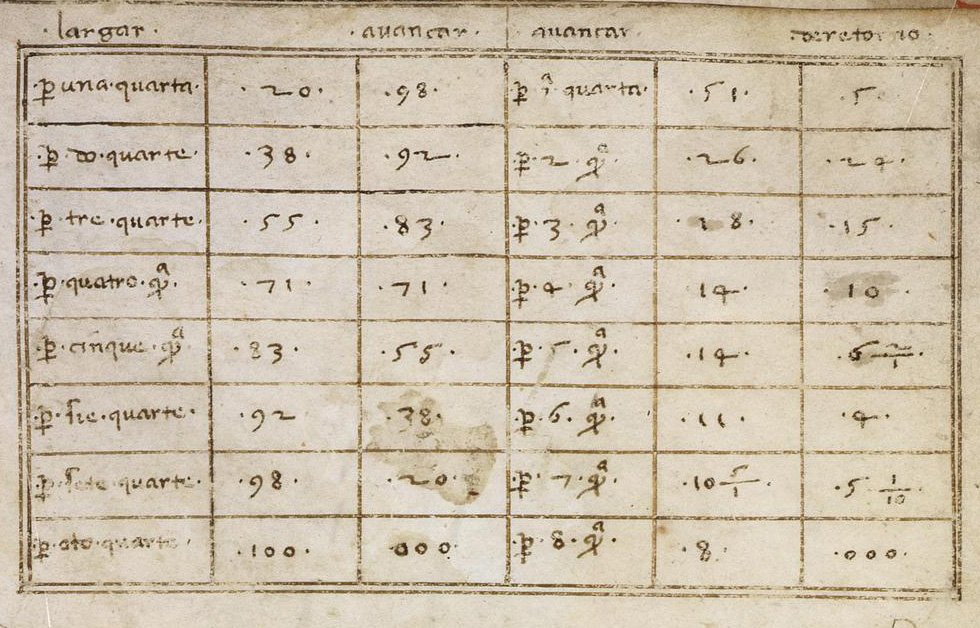 ·largar· ·auancar· auancar· ·deretorno·
·ꝑ una·quarta· ·20· ·98· ·ꝑ ·ī· quarta· ·51· ·5·
·ꝑ· do·quarte· ·38· ·92· ·ꝑ· 2 · qᷓꝛ· ·26· ·24·
·ꝑ· tre·quarte· ·55· ·83· ·ꝑ· 3 · qᷓꝛ· ·18· ·15·
·ꝑ· quatro·qᷓꝛ· ·71· ·71· ·ꝑ· 4 · qᷓꝛ· ·14· ·10·
·ꝑ· cinque·qᷓꝛ· ·83· ·55· ·ꝑ· 5 · qᷓꝛ· ·14· ·6 2/1·
·ꝑ· sie·quarte· ·92 ·38· ·ꝑ· 6 · qᷓꝛ· ·11· ·4·
·ꝑ· sete quarte· ·98· ·20· ·ꝑ· 7 · qᷓꝛ· ·10 5/1· ·5 1/10·
·ꝑ· oto·quarte· ·100· ·000· ·ꝑ· 8 · qᷓꝛ· ·8· ·000·